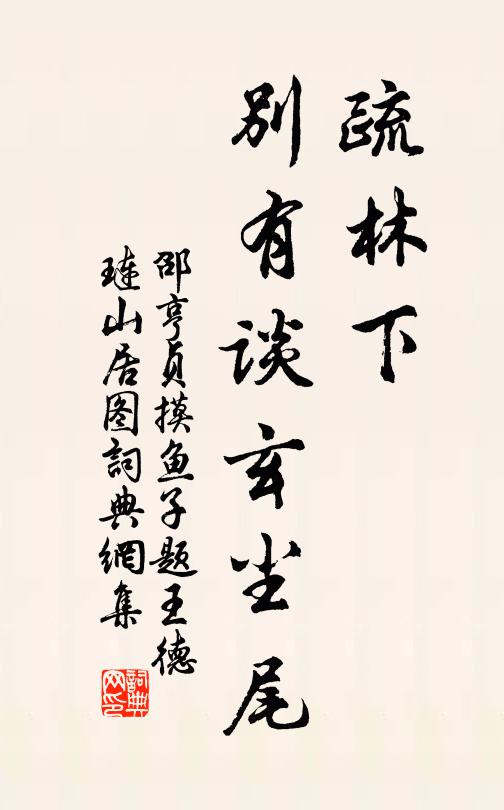 疏林下
别有谈玄尘尾
邵亨贞摸鱼子题王德
琏山居图詞典網集
詞典网印